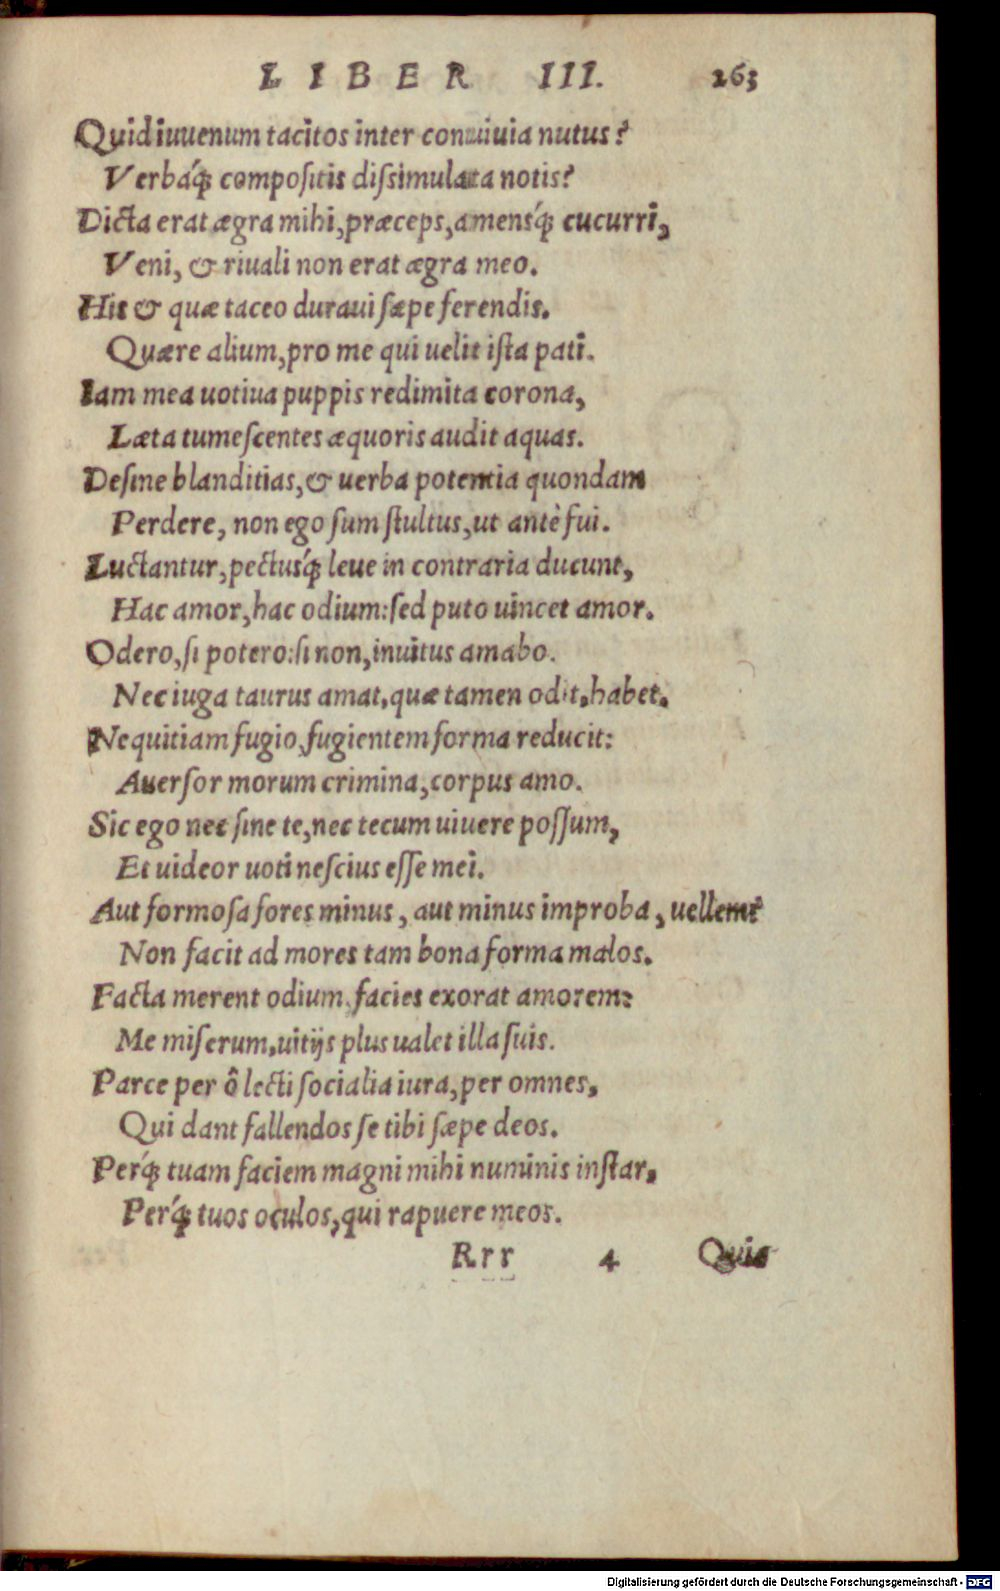 LIBER III. 263
Quid iuuenum tacitos inter conuiuia nutus?
Verbáq; compositis dissimulata notis?
Dicta erat ægra mihi, præceps, amensq́; cucurri,
Veni, & riuali non erat ægra meo.
His & quæ taceo duraui sæpe ferendis.
Quære alium, pro me qui uelit ista pati.
Iam mea uotiua puppis redimita corona,
Læta tumescentes æquoris audit aquas.
Desine blanditias, & uerba potentia quondam
Perdere, non ego sum stultus, ut antè fui.
Luctantur, pectusq́; leue in contraria ducunt,
Hac amor, hac odium: sed puto uincet amor.
Odero, si potero: si non, inuitus amabo.
Nec iuga taurus amat, quæ tamen odit, habet.
Nequitiam fugio, fugientem forma reducit:
Auersor morum crimina, corpus amo.
Sic ego nec sine te, nec tecum uiuere possum,
Et uideor uoti nescius esse mei.
Aut formosa fores minus, aut minus improba, uellem?
Non facit ad mores tam bona forma malos.
Facta merent odium, facies exorat amorem:
Me miserum, uitijs plus ualet illa suis.
Parce per ô lecti socialia iura, per omnes,
Qui dant fallendos se tibi sæpe deos.
Perq́; tuam faciem magni mihi numinis instar,
Perq́; tuos oculos, qui rapuere meos.
Rrr 4 Quic
Digitalisierung gefördert durch die Deutsche Forschungsgemeinschaft - DFG